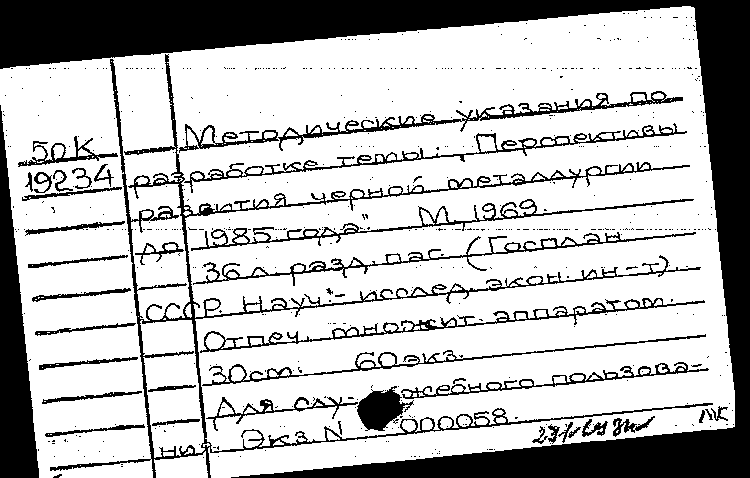 Методические указания по
50К
разработке темы: „Перспективы
19234
развития черной металлургии
до 1985 года." М, 1969.
36 л. разд. паг. (Госплан
СССР. Науч.- исслед. экон. ин-т).
Отпеч. множит. аппаратом.
30 cm. 60 экз.
Для слу- жебного пользова-
ния. Экз. N 000058.
МК